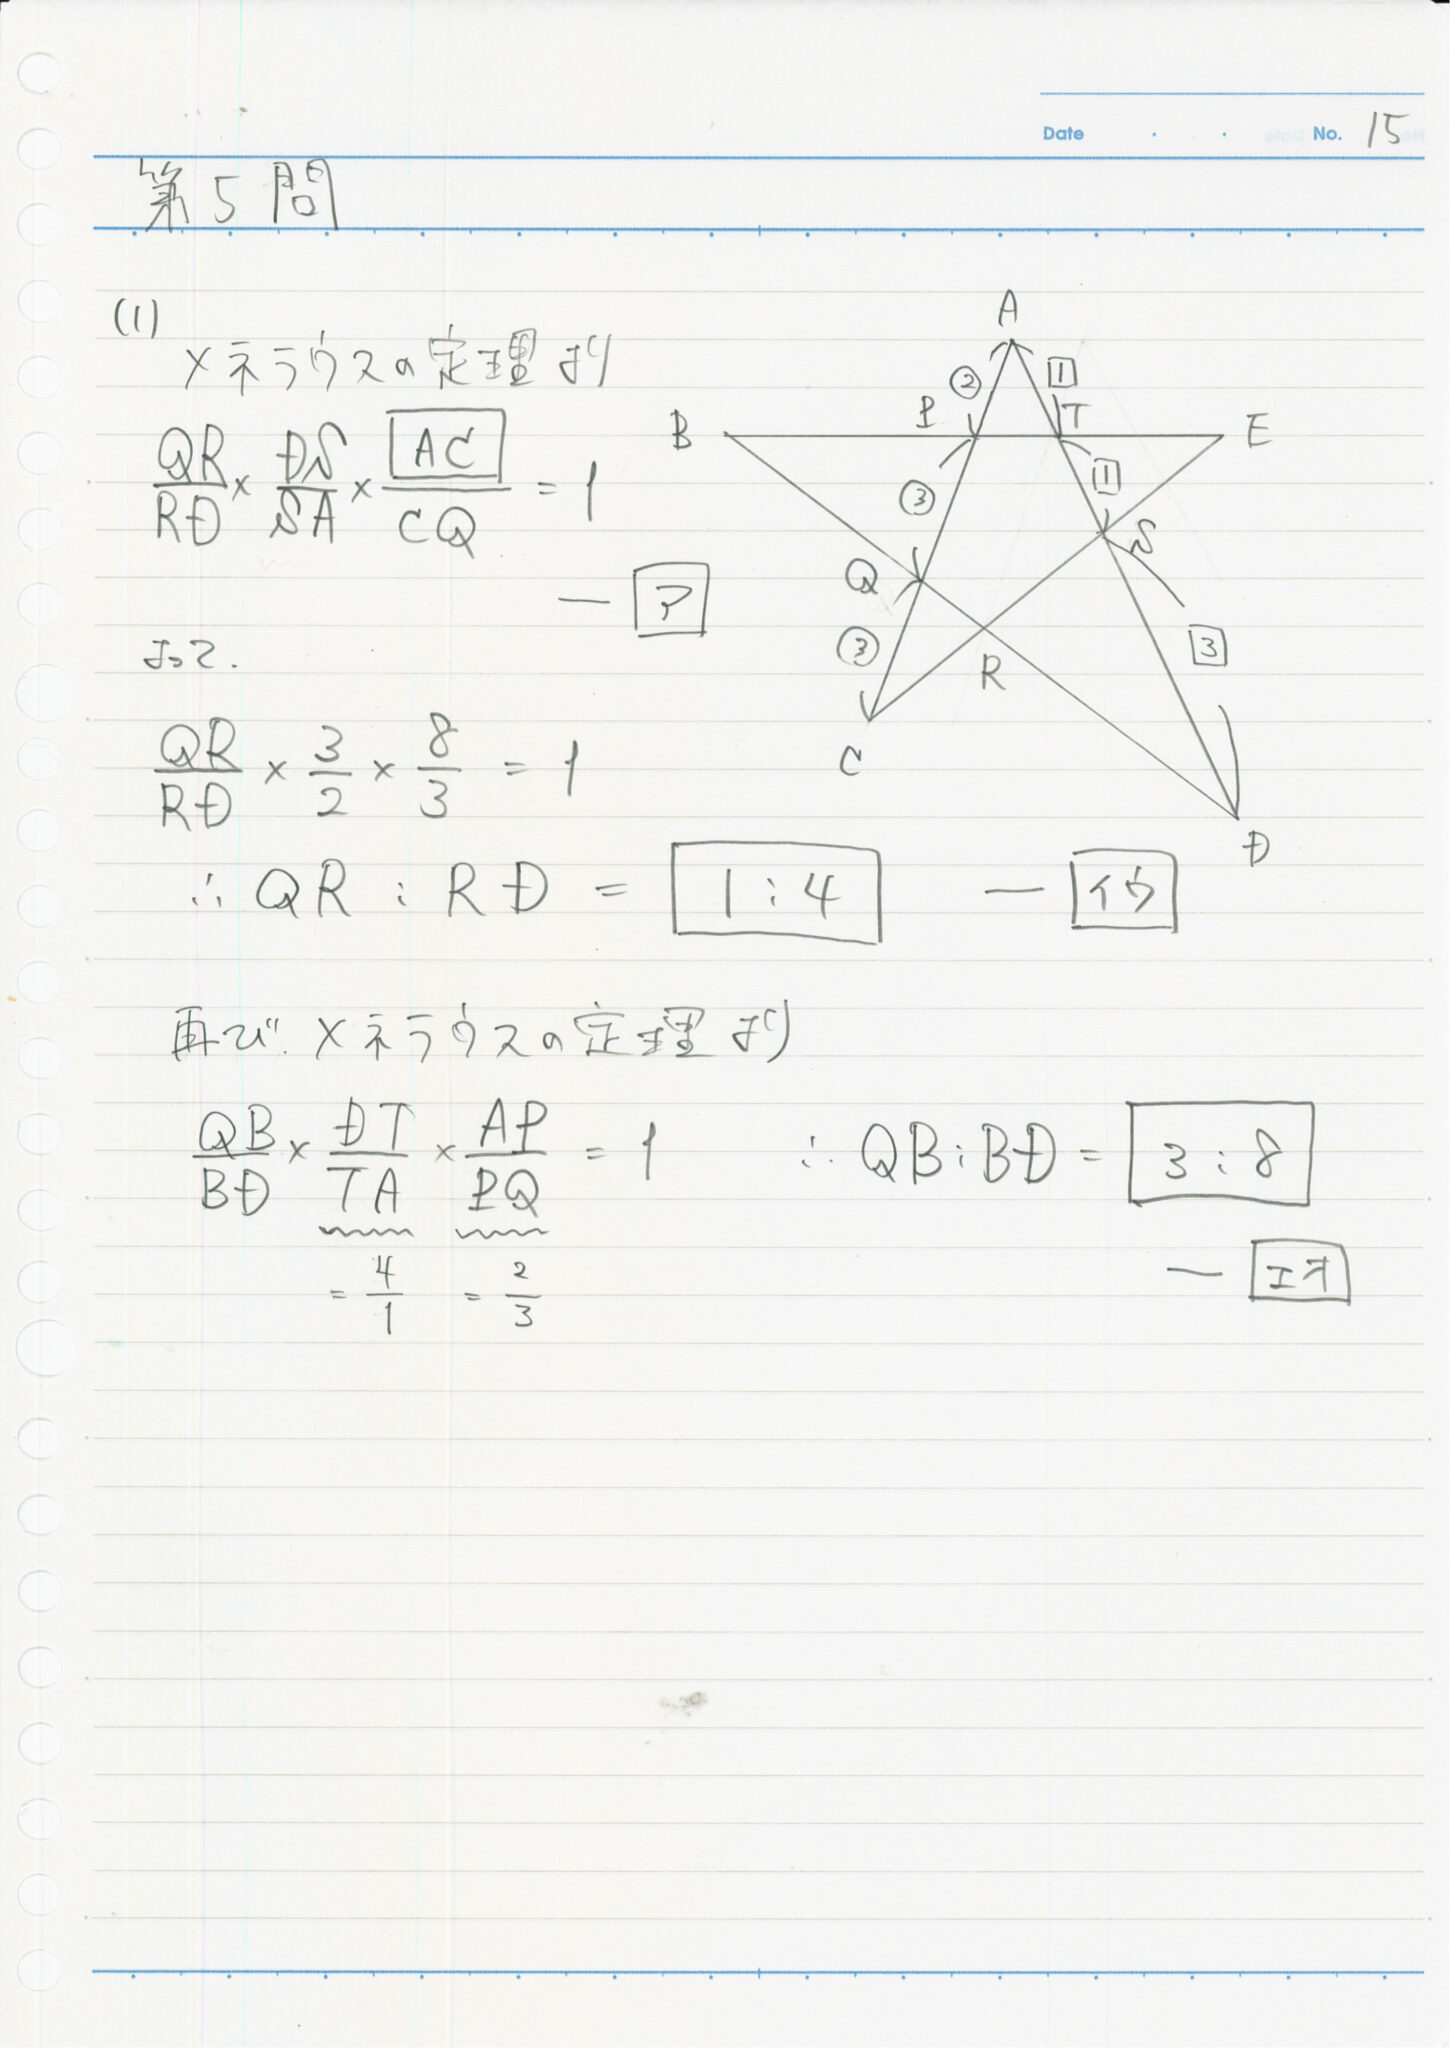 Date . . . No. 15
第5問
(1)
メネラウスの定理より
QR/RD × DS/SA × AC/CQ = 1
— ア
よって.
QR/RD × 3/2 × 8/3 = 1
∴ QR : RD = 1 : 4 — イウ
A
② 1
B P T E
③ 1
Q S
③ 3
R
C
D
再び. メネラウスの定理より
QB/BD × DT/TA × AP/PQ = 1 ∴ QB : BD = 3 : 8
= 4/1 = 2/3
— エオ